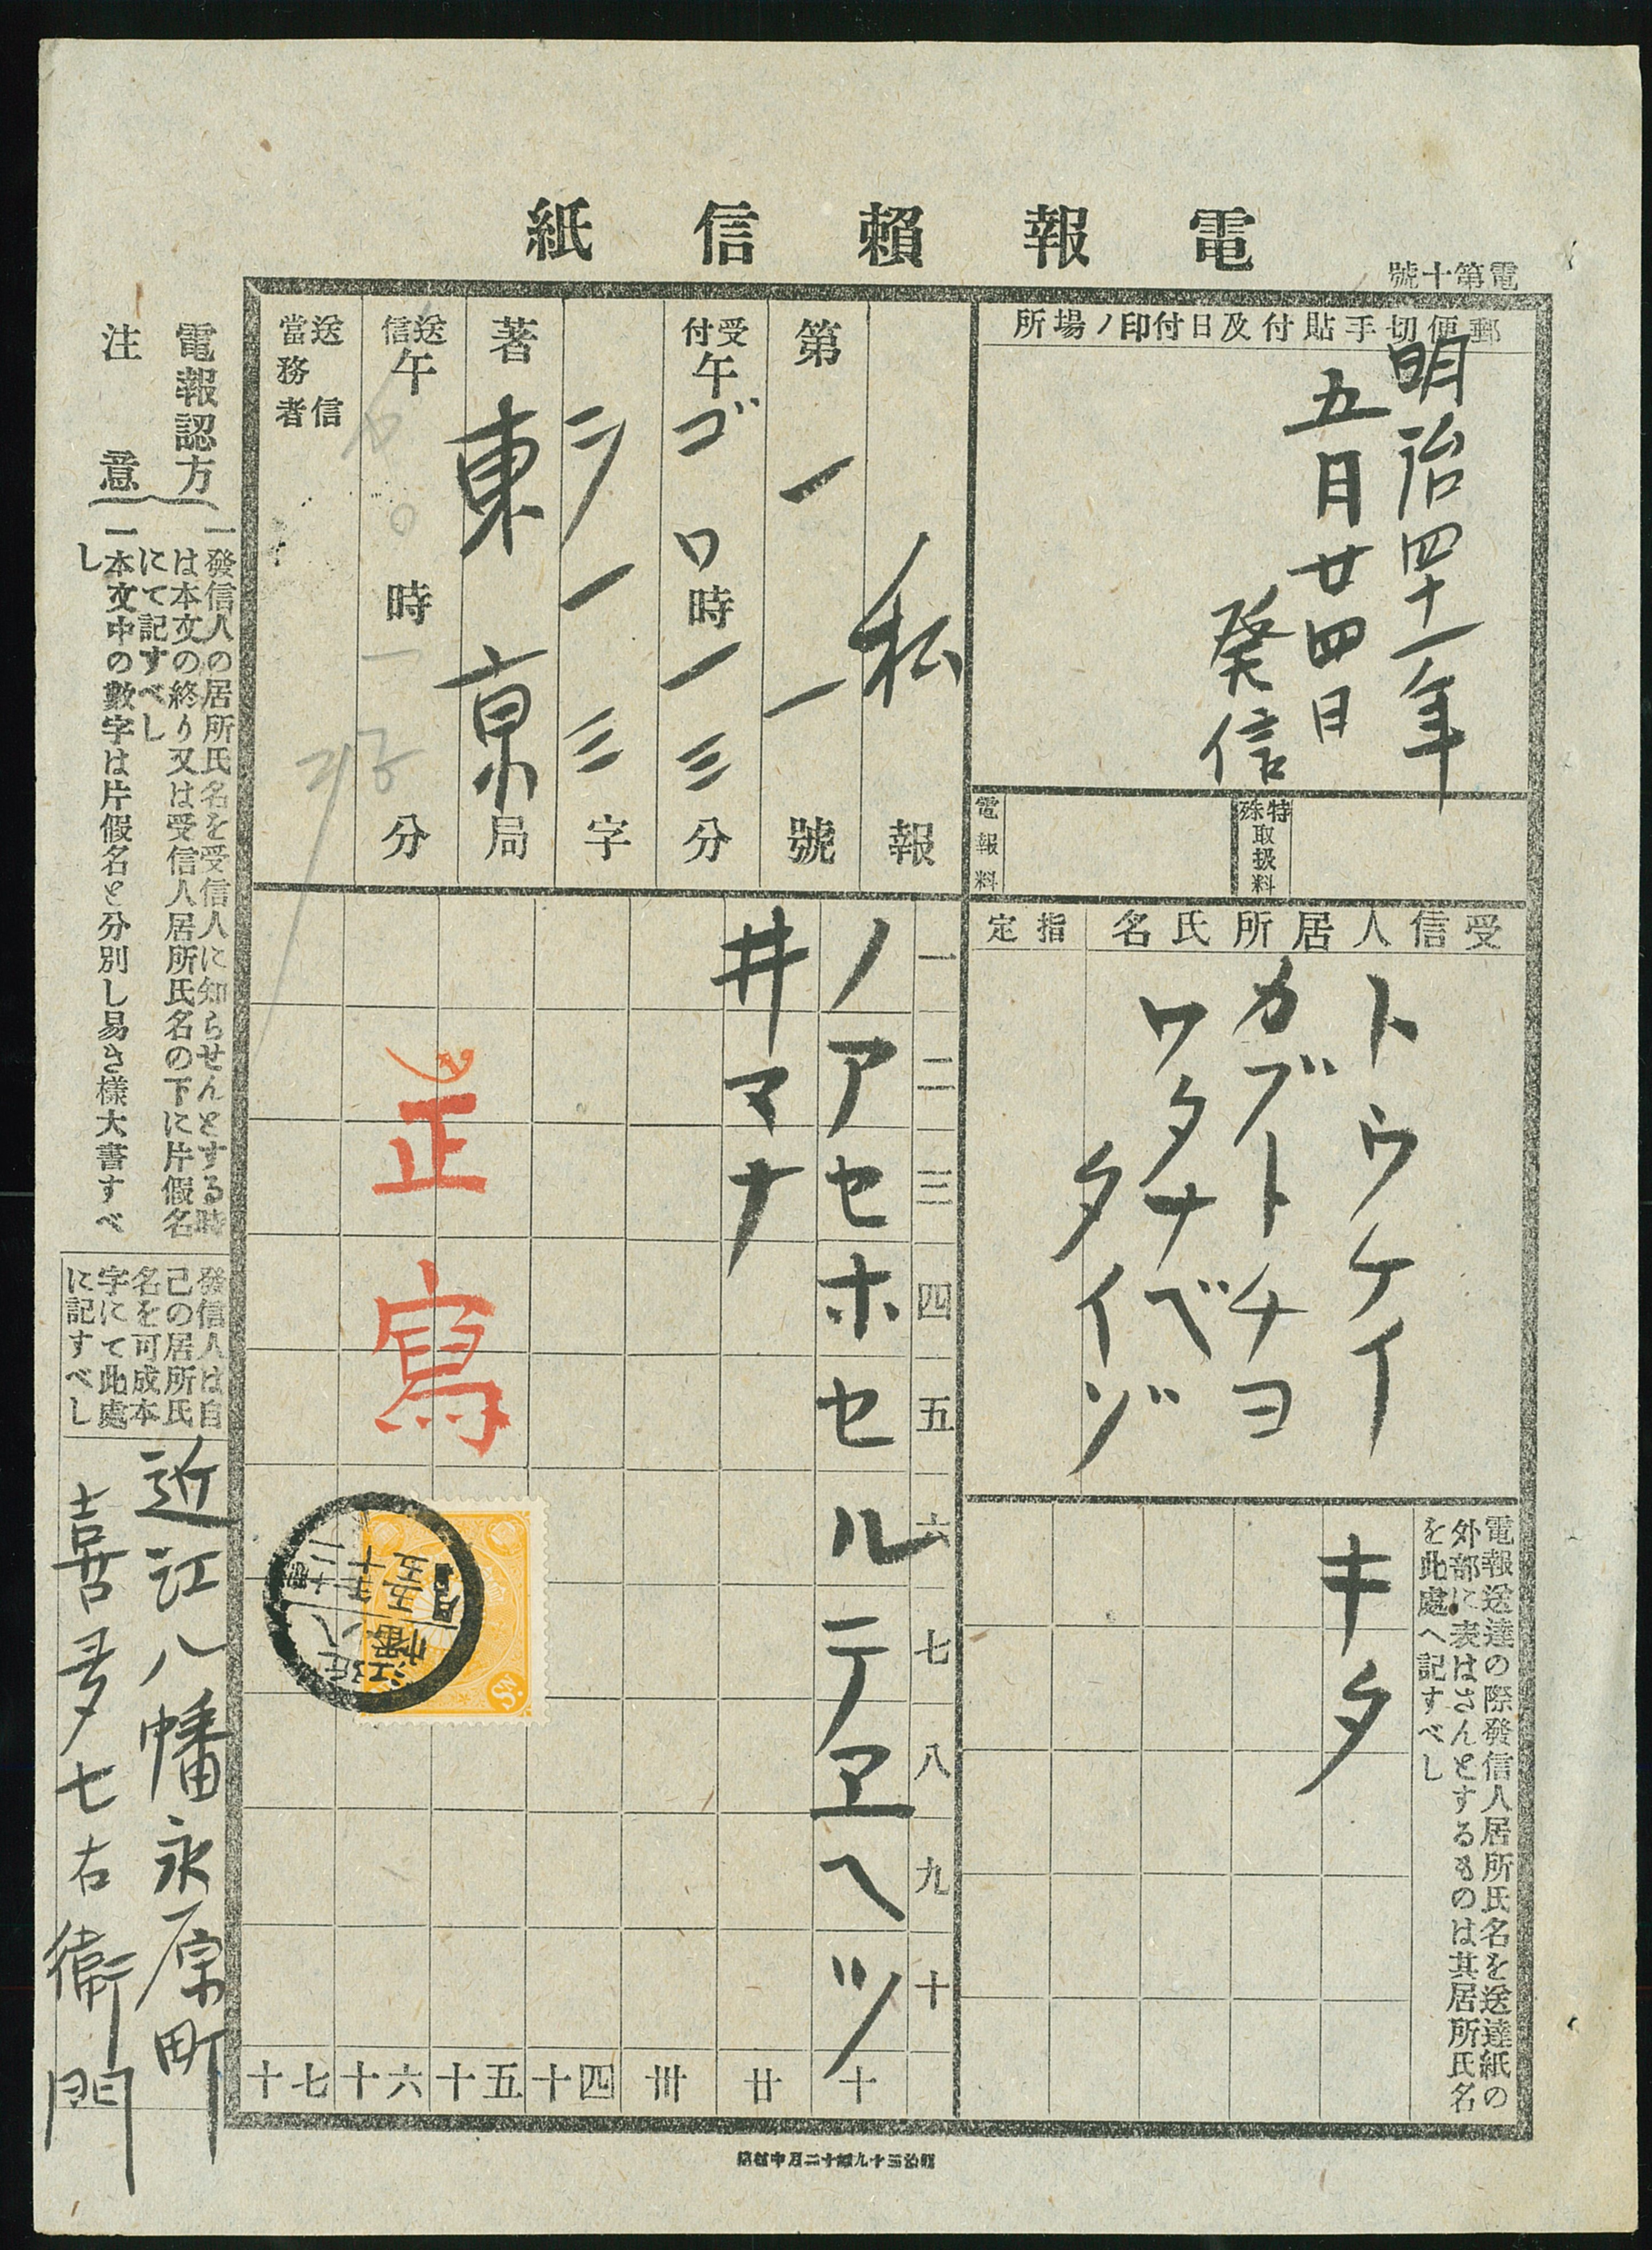 電報賴信紙
電第十號
郵便切手貼付及日付印ノ場所
明治四十一年
五月廿四日
発信
特殊取扱料
電報料
私報
第一一號
受付午ゴ口時一三分
ニラ一三字
著東京局
送信午 時 分
送信當務者
受信人居所氏名
指定
トウケイ
カブトチヨ
ワタナベ
タイゾ
電報送達の際發信人居所氏名を送達紙の
外部に表はさんとするものは其居所氏名
を此處へ記すべし
キタ
一二三四五六七八九十
ノアセホセルテヱヘツ
井マナ
十
廿
卅
四十
五十
六十
七十
正寫
近江八幡
電報認方
注意
一發信人の居所氏名を受信人に知らせんとする時
は本文の終り又は受信人居所氏名の下に片假名
にて記すべし
一本文中の數字は片假名と分別し易き樣大書すべ
し
發信人は自
己の居所氏
名を可成本
字にて此處
に記すべし
近江八幡永原町
喜多七右衛門